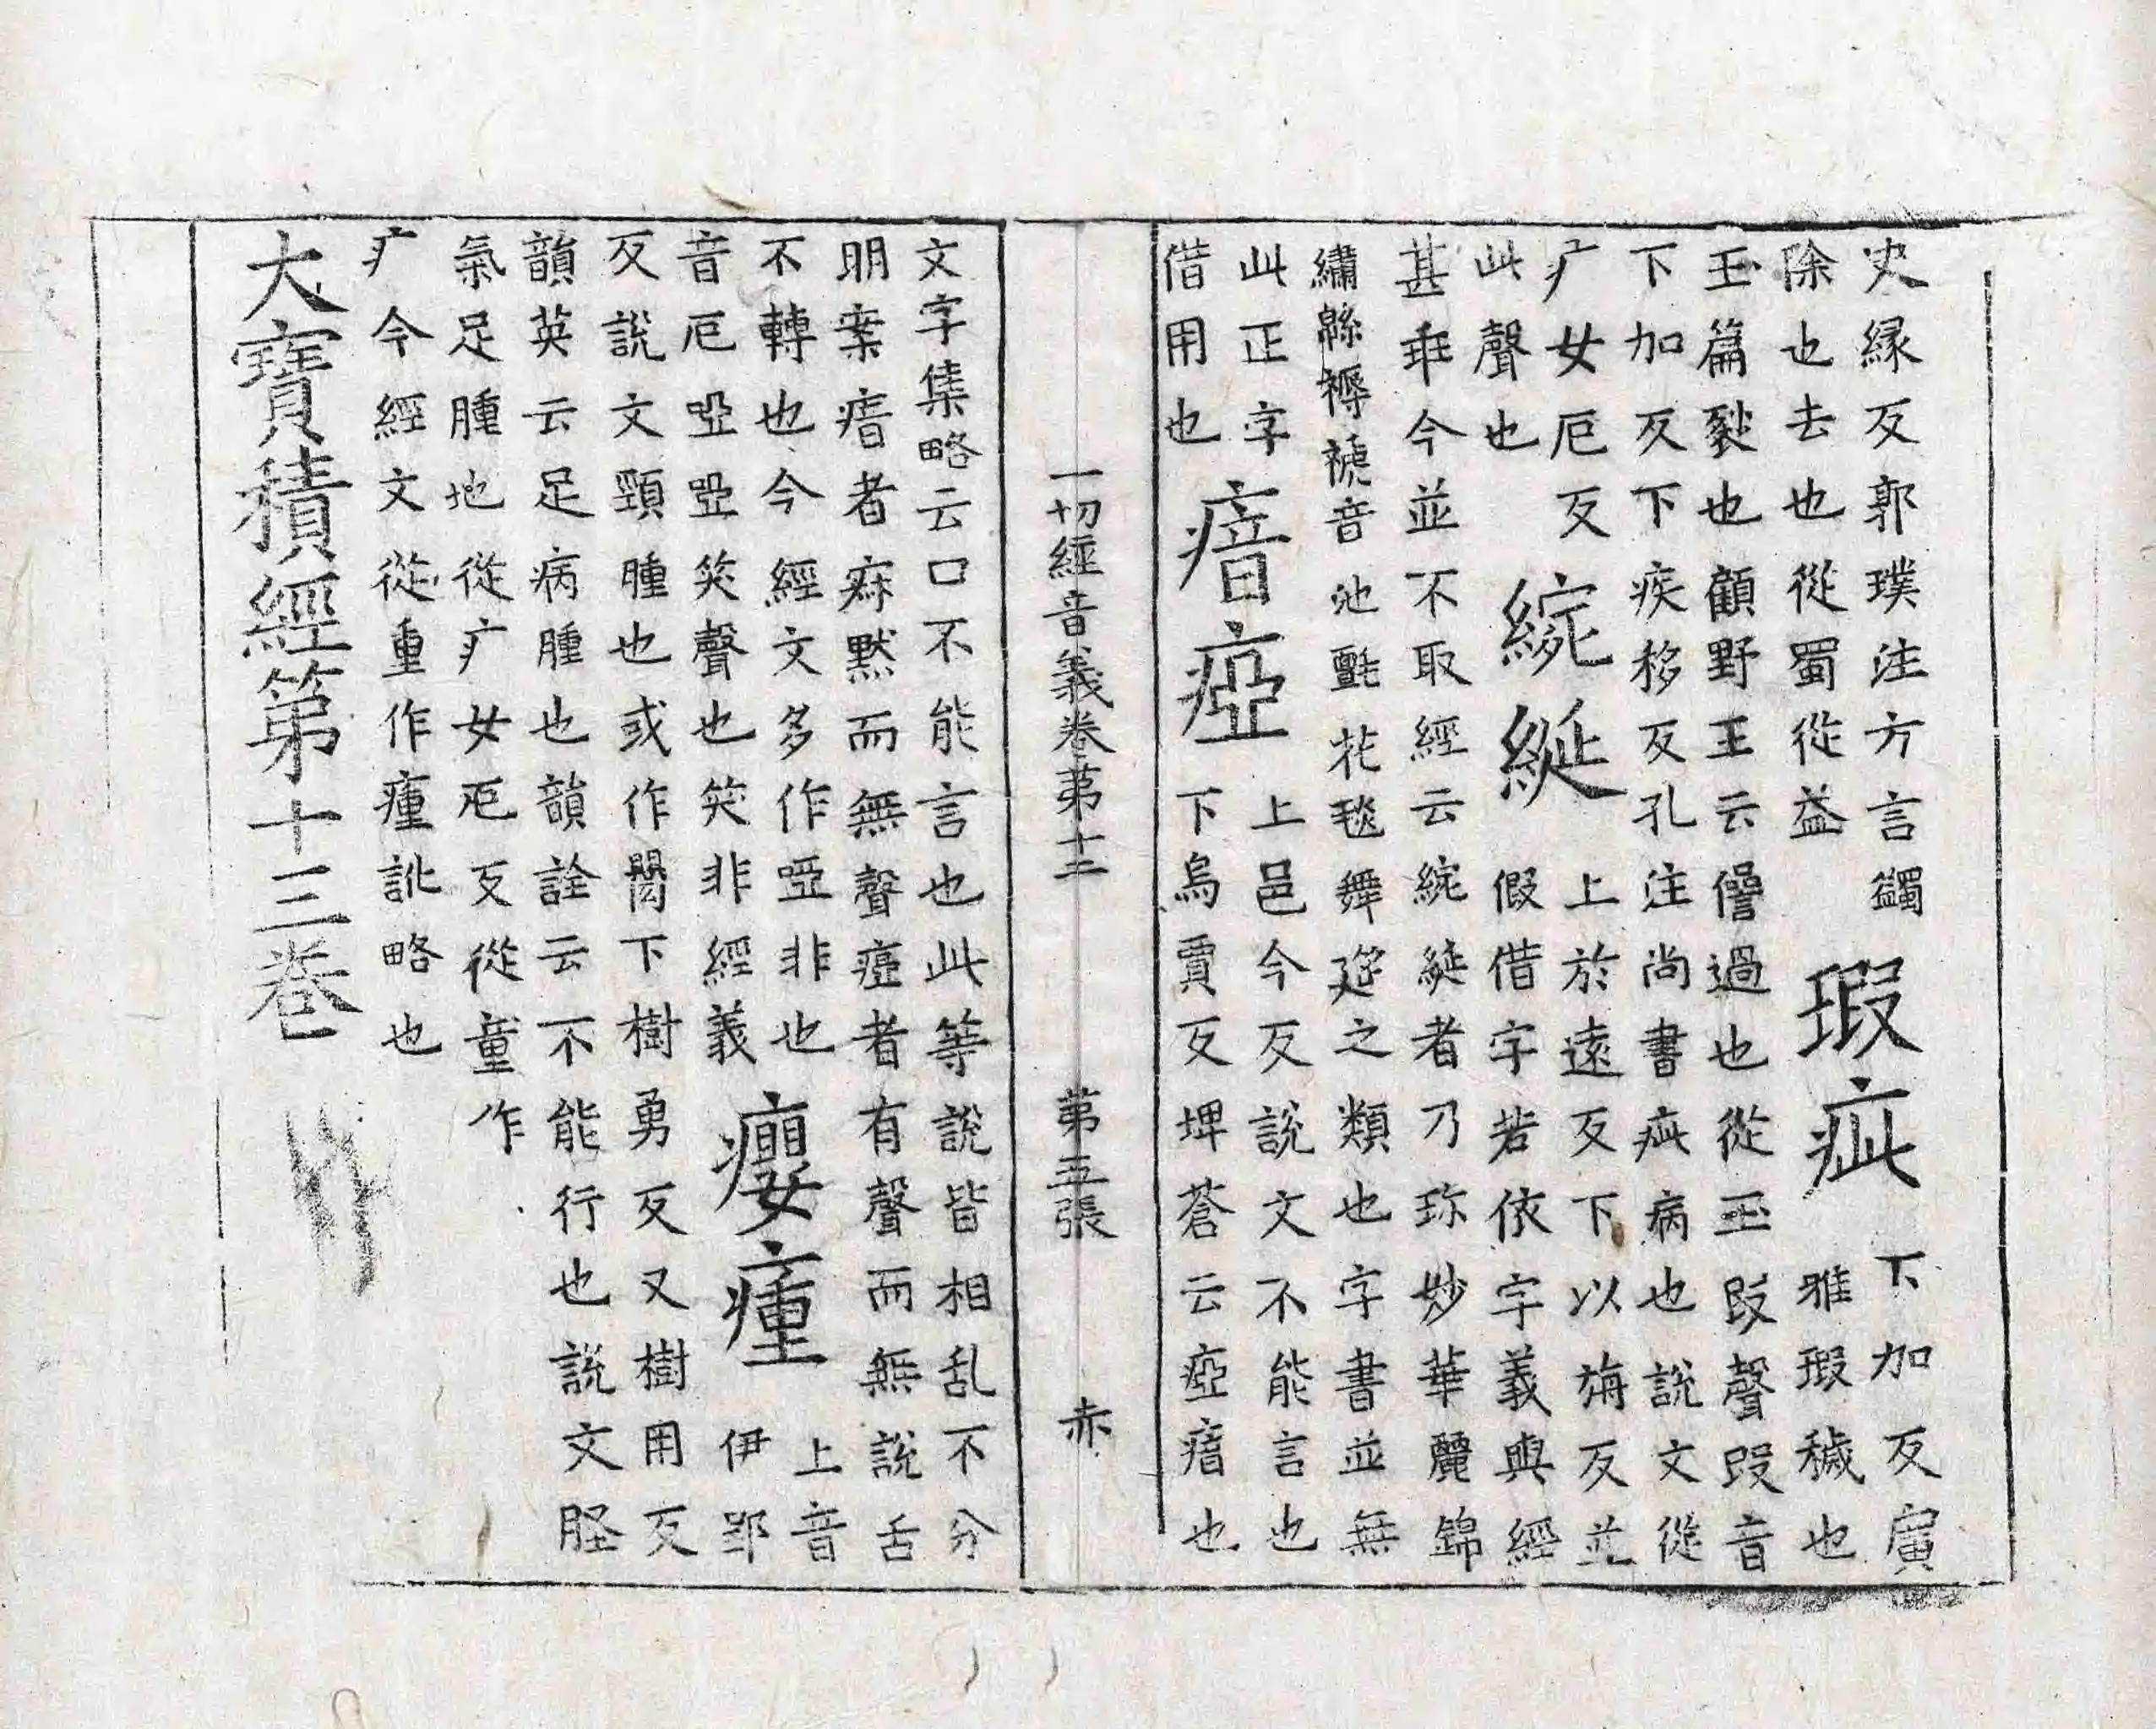 史縁反郭璞注方言蠲
除也去也從蜀從益
瑕疵
下加反廣
雅瑕穢也
玉篇裂也顧野王云僭過也從玉叚聲叚音
下加反下疾移反孔注尚書疵病也說文從
疒女厄反
此聲也
綩綖
上於遠反下以旃反並
假借字若依字義與經
甚乖今並不取經云綩綖者乃珍妙華麗錦
繡緜褥䙰音池氈花毯舞筵之類也字書並無
此正字
借用也
瘖瘂
上邑今反說文不能言也
下烏賈反埤蒼云瘂瘖也
一切經音義卷第十二 第五張 赤
文字集略云口不能言也此等說皆相乱不分
明案瘖者寂默而無聲瘂者有聲而無說舌
不轉也今經文多作啞非也
音厄啞啞笑聲也笑非經義
癭瘇
上音
伊郢
反說文頸腫也或作下樹勇反又樹用反
韻英云足病腫也韻詮云不能行也說文脛
氣足腫也從疒女厄反從童作
疒今經文從重作瘇訛略也
大寶積經第十三卷